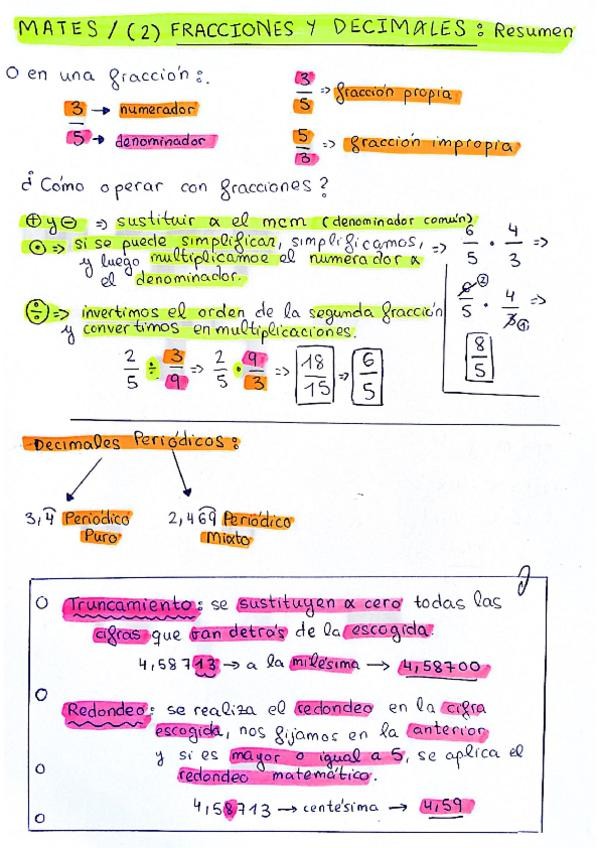 MATES / (2) FRACCIONES Y DECIMALES : Resumen
O en una fracción:.
3/5 => fracción propia
3 → numerador
5 → denominador
5/3 => fracción impropia
¿Cómo operar con fracciones?
+ y - => sustituir x el mcm (denominador común)
· => si se puede simplificar, simplificamos, => 6/5 · 4/3 =>
y luego multiplicamos el numerador x
el denominador.
6/5 (2) · 4/3 (1) =>
8/5
÷ => invertimos el orden de la segunda fracción
y convertimos en multiplicaciones.
2/5 ÷ 3/9 => 2/5 · 9/3 => 18/15 => 6/5
Decimales Periódicos:
3,4̂ Periódico Puro
2,46̂9̂ Periódico Mixto
O Truncamiento: se sustituyen x cero todas las
cifras que van detrás de la escogida.
4,58713 → a la milésima → 4,58700
O Redondeo: se realiza el redondeo en la cifra
escogida, nos fijamos en la anterior
y si es mayor o igual a 5, se aplica el
redondeo matemático.
4,58713 → centésima → 4,59